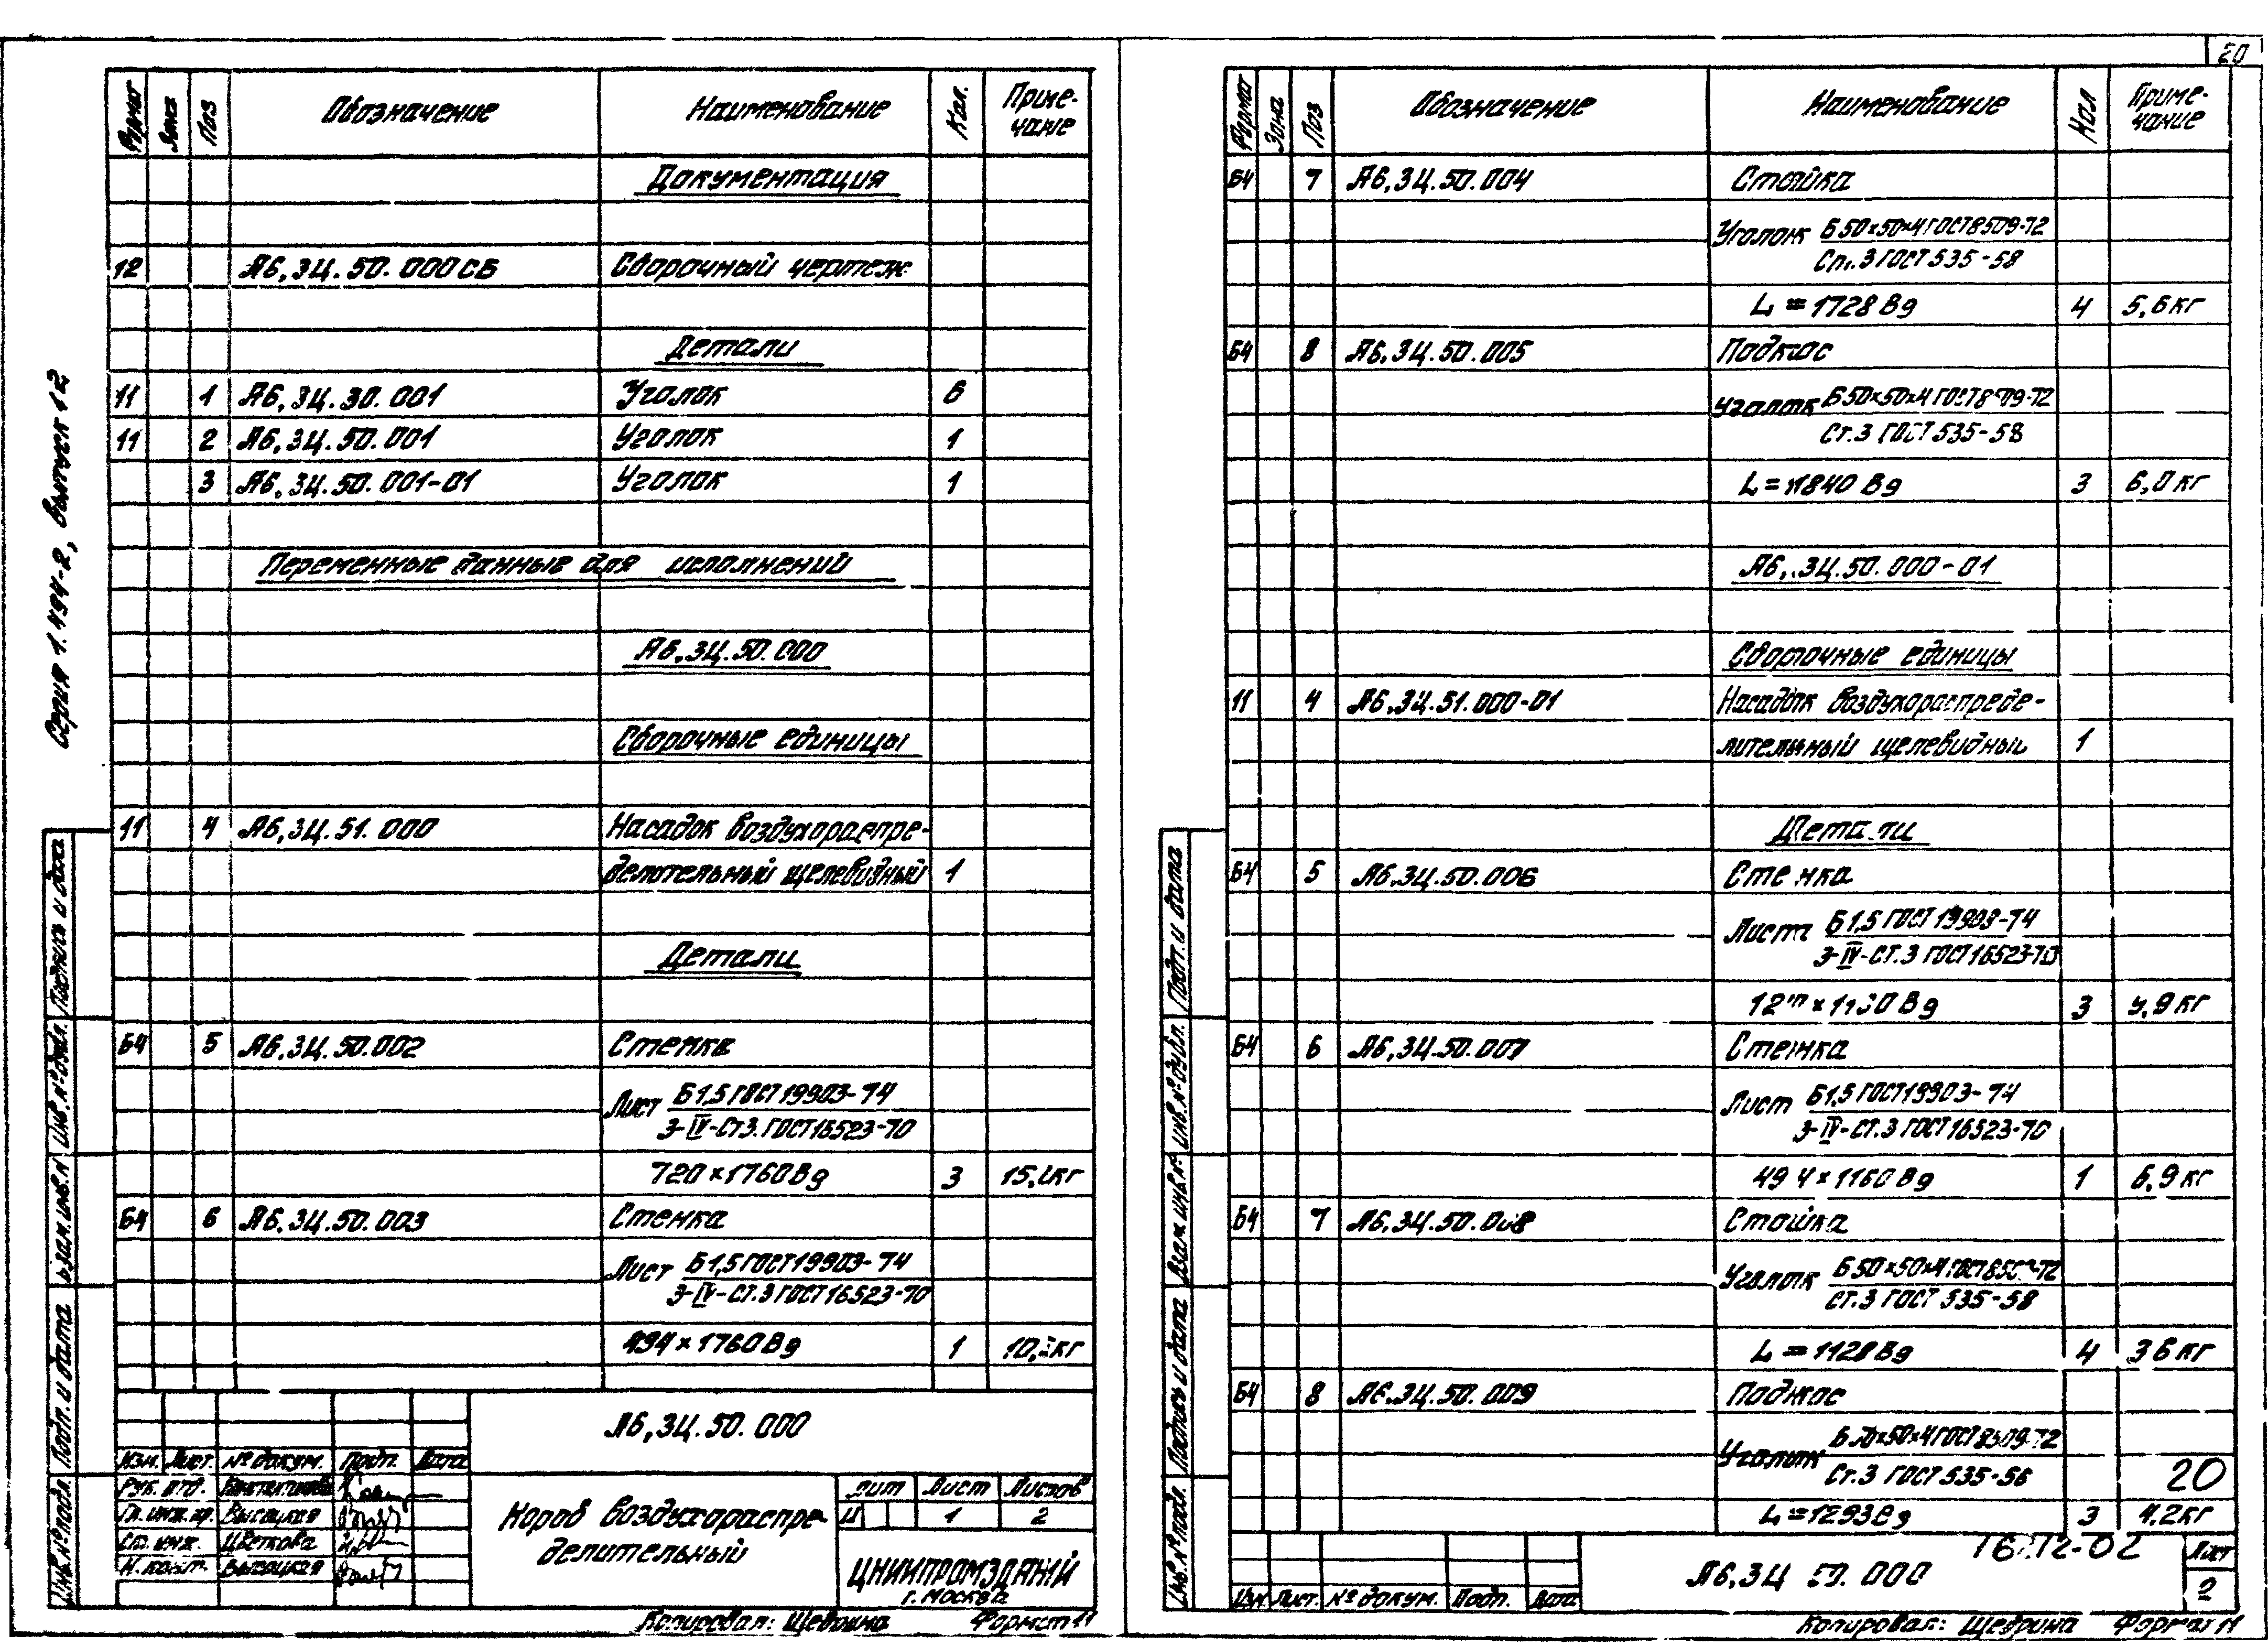 20
Серия 1.494-2, выпуск 12
Формат Зона Поз Обозначение Наименование Кол. Приме-
чание
Документация
12 А6,3Ц.50.000СБ Сборочный чертеж
Детали
11 1 А6,3Ц.30.001 Уголок 6
11 2 А6,3Ц.50.001 Уголок 1
3 А6,3Ц.50.001-01 Уголок 1
Переменные данные для исполнений
А6,3Ц.50.000
Сборочные единицы
11 4 А6,3Ц.51.000 Насадок воздухораспре-
делительный щелевидный 1
Детали
Б4 5 А6,3Ц.50.002 Стенка
Лист Б1,5 ГОСТ 19903-74
3-IV-Ст3.ГОСТ16523-70
720×1760 Вд 3 кг
Б4 6 А6,3Ц.50.003 Стенка
Лист Б1,5 ГОСТ19903-74
3-IV-Ст.3 ГОСТ16523-70
494×1760 Вд 1 кг
А6,3Ц.50.000
Изм. Лист. № докум. Подп. Дата
Рук. отд.
Гл. инж. пр. Высоцкая
Ст. инж. Цветкова
Н. конт. Высоцкая
Короб воздухораспре-
делительный
Лит Лист Листов
И 1 2
ЦНИИПРОМЗДАНИЙ
г. Москва
Копировал: Щедрина Формат 11
Подпись и дата
Инв. № дубл.
Взам. инв. №
Подп. и дата
Инв. № подл.
Формат Зона Поз Обозначение Наименование Кол Приме-
чание
Б4 7 А6,3Ц.50.004 Стойка
Уголок Б50×50×4 ГОСТ8509-72
Ст.3 ГОСТ 535-58
L=1728 Вд 4 5,6кг
Б4 8 А6,3Ц.50.005 Подкос
Уголок Б50×50×4 ГОСТ8509-72
Ст.3 ГОСТ 535-58
L=1840 Вд 3 6,0 кг
А6,3Ц.50.000-01
Сборочные единицы
11 4 А6,3Ц.51.000-01 Насадок воздухораспреде-
лительный щелевидный 1
Детали
Б4 5 А6,3Ц.50.006 Стенка
Лист Б1,5 ГОСТ 19903-74
3-IV-Ст.3 ГОСТ16523-70
Вд 3 кг
Б4 6 А6,3Ц.50.007 Стенка
Лист Б1,5 ГОСТ19903-74
3-IV-Ст.3 ГОСТ16523-70
494×1160 Вд 1 6,9 кг
Б4 7 А6,3Ц.50.008 Стойка
Уголок Б50×50×4 ГОСТ8509-72
Ст.3 ГОСТ 535-58
L=1128 Вд 4 3,6 кг
Б4 8 А6,3Ц.50.009 Подкос
Уголок Б50×50×4 ГОСТ8509-72
Ст.3 ГОСТ 535-58
20
L=1293 Вд 3 4,2кг
А6,3Ц.50.000
Лист
2
Изм Лист. № докум. Подп. Дата
Копировал: Щедрина Формат 11
Подп. и дата
Инв. № дубл.
Взам инв. №
Подпись и дата
Инв. № подл.